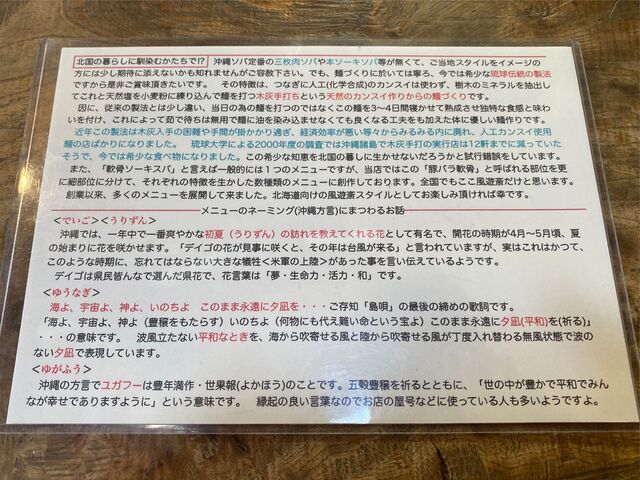 北国の暮らしに馴染むかたちで!? 沖縄ソバ定番の三枚肉ソバや本ソーキソバ等が無くて、ご当地スタイルをイメージの
方には少し期待に添えないかも知れませんがご容赦下さい。でも、麺づくりに於いては寧ろ、今では希少な琉球伝統の製法
ですから是非ご賞味頂きたいです。 その特徴は、つなぎに人工(化学合成)のカンスイは使わず、樹木のミネラルを抽出し
てこれと天然塩を小麦粉に練り込んで麺を打つ木灰手打ちという天然のカンスイ作りからの麺づくりです。
因に、従来の製法とは少し違い、当日の為の麺を打つのではなくこの麺を3〜4日間寝かせて熟成させ独特な食感と味わ
いを付け、これによって茹で待ちは無用で麺に油を染み込ませなくても良くなる工夫をも加えた体に優しい麺作りです。
近年この製法は木灰入手の困難や手間が掛かかり過ぎ、経済効率が悪い等々からみるみる内に廃れ、人工カンスイ使用
麺の店ばかりになりました。 琉球大学による2000年度の調査では沖縄諸島で木灰手打の実行店は12軒までに減っていた
そうで、今では希少な食べ物になりました。この希少な知恵を北国の暮しに生かせないだろうかと試行錯誤をしています。
また、「軟骨ソーキスバ」と言えば一般的には1つのメニューですが、当店ではこの「豚バラ軟骨」と呼ばれる部位を更
に細部位に分けて、それぞれの特徴を生かした数種類のメニューに創作しております。全国でもここ風遊斎だけと思います。
創業以来、多くのメニューを展開して来ました。北海道向けの風遊斎スタイルとしてお楽しみ頂ければ幸です。
メニューのネーミング(沖縄方言)にまつわるお話
<でいご><うりずん>
沖縄では、一年中で一番爽やかな初夏（うりずん）の訪れを教えてくれる花として有名で、開花の時期が4月〜5月頃、夏
の始まりに花を咲かせます。「デイゴの花が見事に咲くと、その年は台風が来る」と言われていますが、実はこれはかつて、
このような時期に、忘れてはならない大きな犠牲<米軍の上陸>があった事を言い伝えているようです。
デイゴは県民皆んなで選んだ県花で、花言葉は「夢・生命力・活力・和」です。
<ゆうなぎ>
海よ、宇宙よ、神よ、いのちよ このまま永遠に夕凪を・・・ご存知「島唄」の最後の締めの歌詞です。
「海よ、宇宙よ、神よ（豊穣をもたらす）いのちよ（何物にも代え難い命という宝よ）このまま永遠に夕凪(平和)を(祈る)」
・・・の意味です。 波風立たない平和なときを、海から吹寄せる風と陸から吹寄せる風が丁度入れ替わる無風状態で波の
ない夕凪で表現しています。
<ゆがふう>
沖縄の方言でユガフーは豊年満作・世果報(よかほう)のことです。五穀豊穣を祈るとともに、「世の中が豊かで平和でみん
なが幸せでありますように」という意味です。 縁起の良い言葉なのでお店の屋号などに使っている人も多いようですよ。